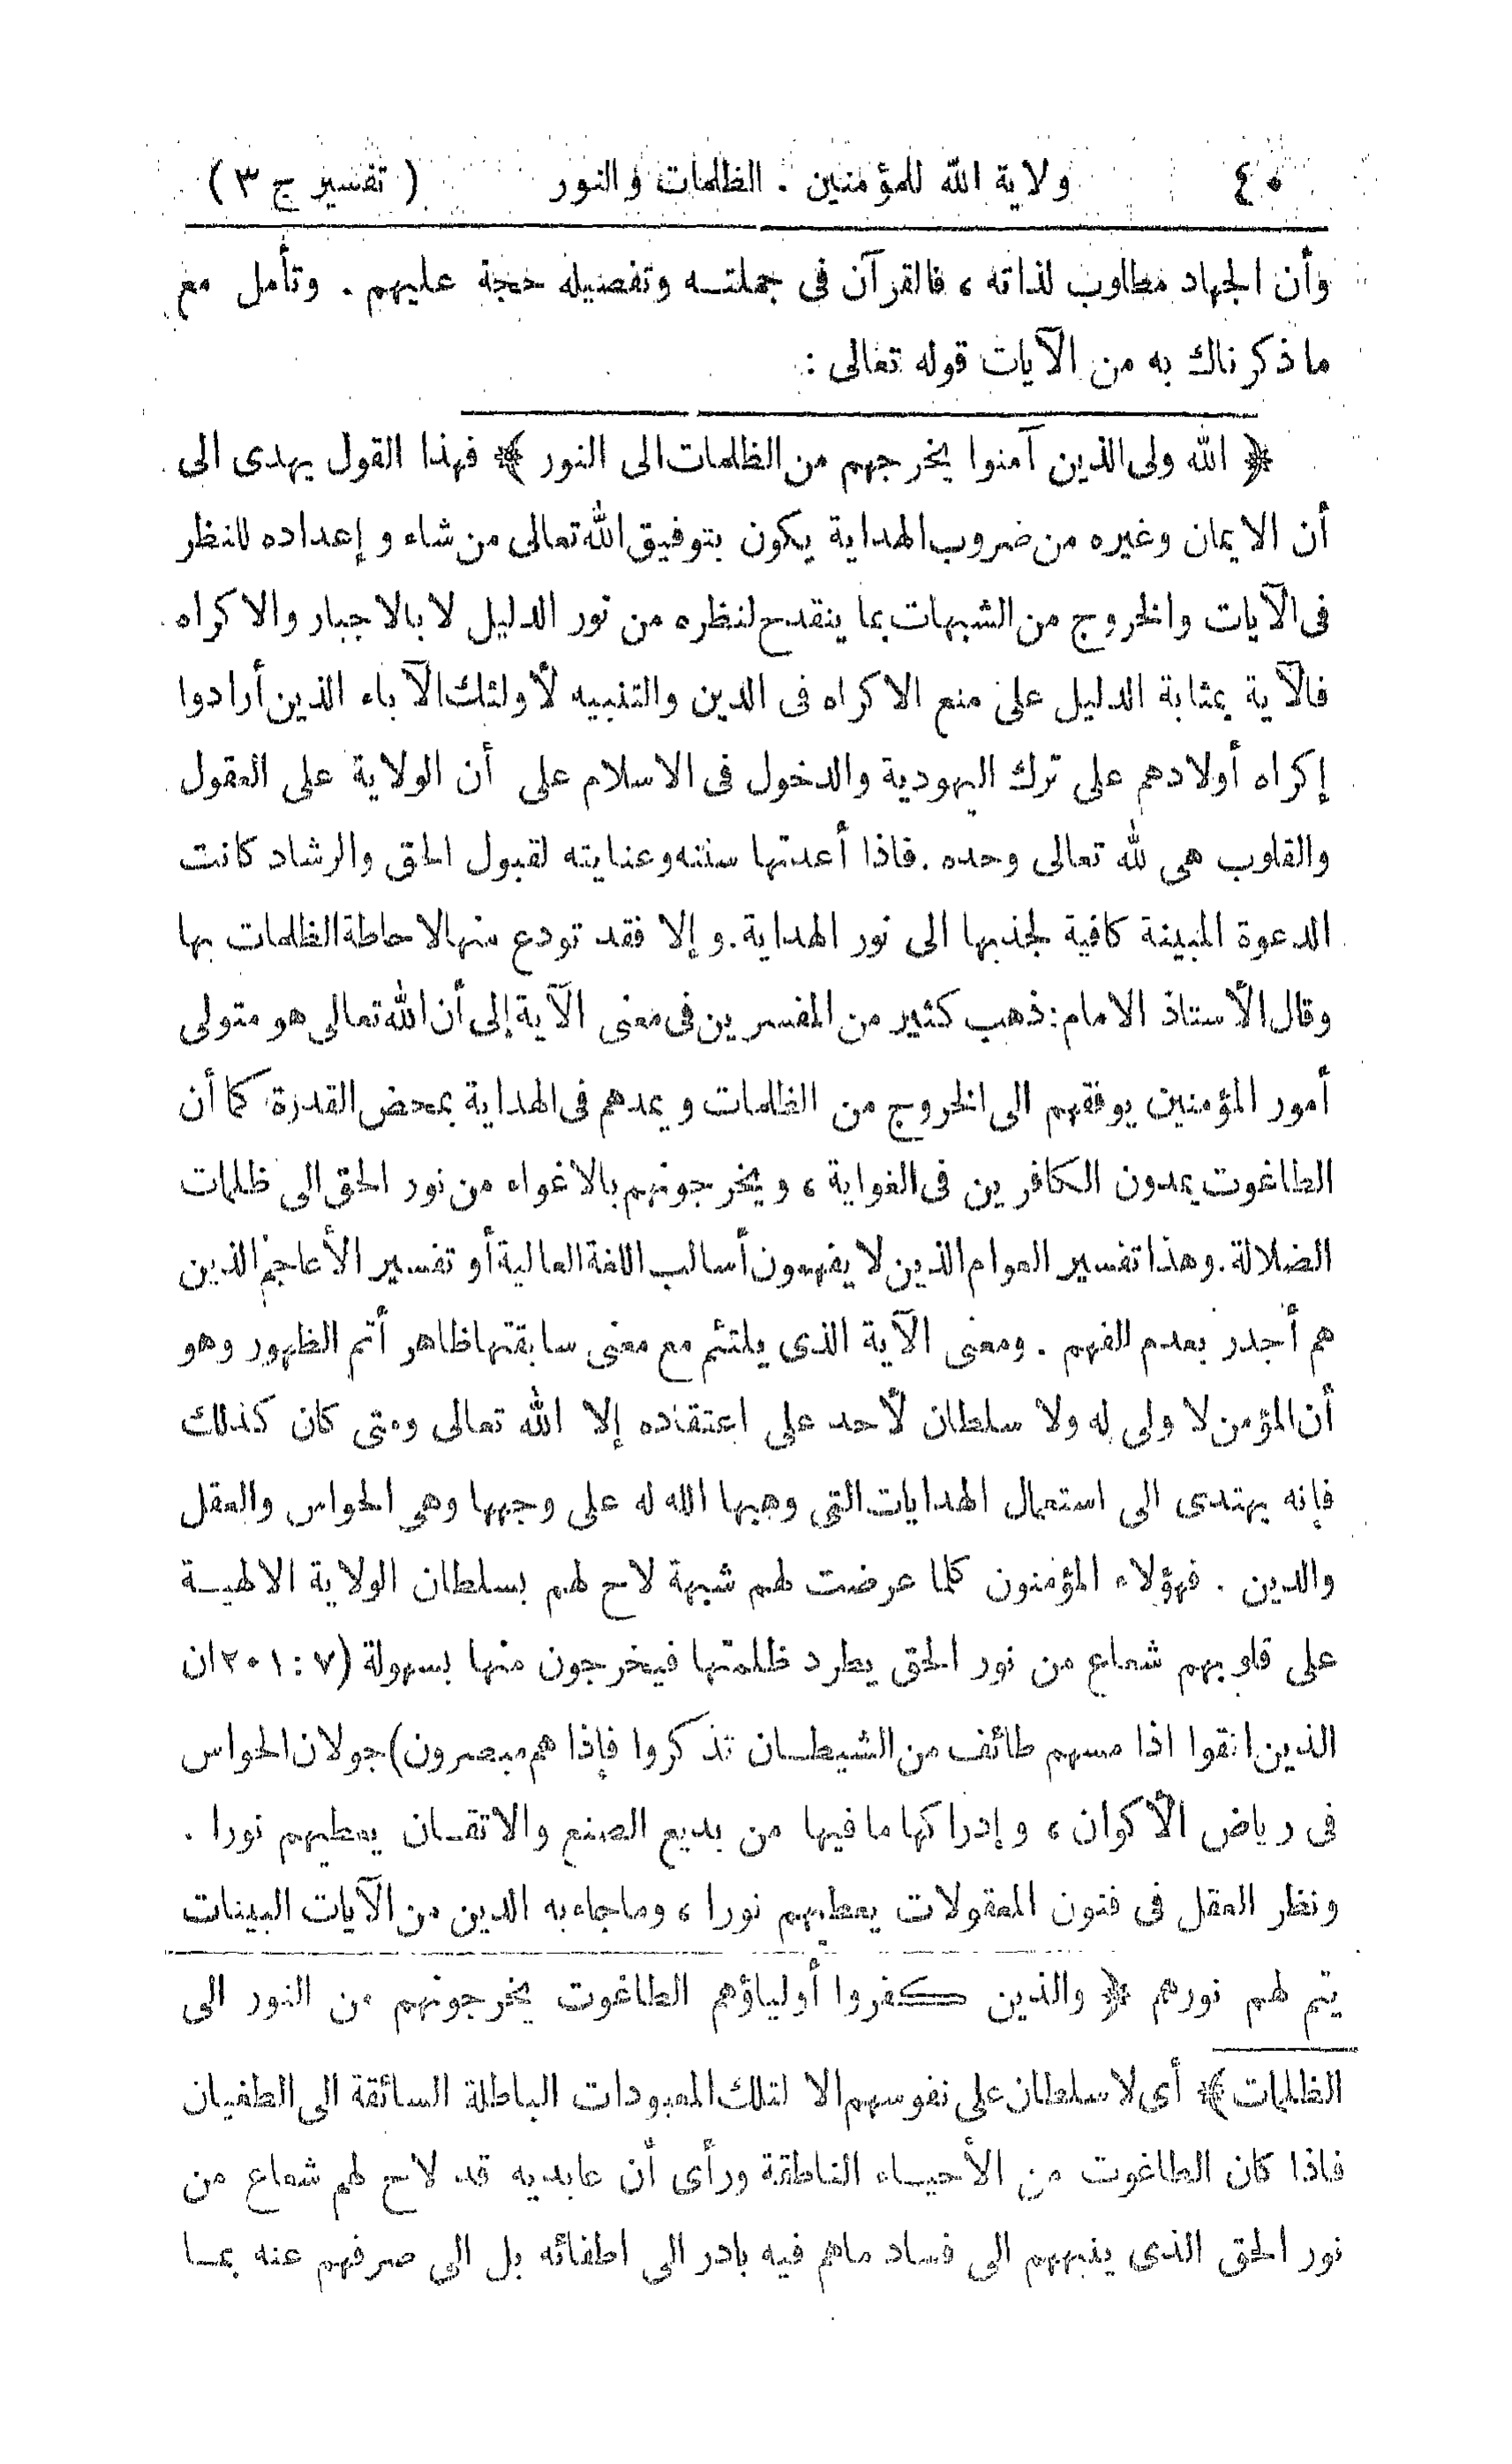 ٤٠ ولاية الله للمؤمنين . الظلمات والنور ( تفسير ج ٣ )
وأن الجهاد مطلوب لذاته ، فالقرآن فى جملته وتفصيله حجة عليهم . وتأمل مع
ما ذكرناك به من الآيات قوله تعالى :
﴿ الله ولى الذين آمنوا يخرجهم من الظلمات الى النور ﴾ فهذا القول يهدى الى
أن الايمان وغيره من ضروب الهداية يكون بتوفيق الله تعالى من شاء و إعداده للنظر
فى الآيات والخروج من الشبهات بما ينقدح لنظره من نور الدليل لا بالاجبار والاكراه
فالآية بمثابة الدليل على منع الاكراه فى الدين والتنبيه لأولئك الآباء الذين أرادوا
إكراه أولادهم على ترك اليهودية والدخول فى الاسلام على أن الولاية على العقول
والقلوب هى لله تعالى وحده . فاذا أعدتها سنته وعنايته لقبول الحق والرشاد كانت
الدعوة المبينة كافية لجذبها الى نور الهداية . و إلا فقد تودع منها لاحاطة الظلمات بها
وقال الأستاذ الامام : ذهب كثير من المفسرين فى معنى الآية إلى أن الله تعالى هو متولى
أمور المؤمنين يوفقهم الى الخروج من الظلمات و يمدهم فى الهداية بمحض القدرة كما أن
الطاغوت يمدون الكافرين فى الغواية ، و يخرجونهم بالاغواء من نور الحق الى ظلمات
الضلالة . وهذا تفسير العوام الذين لا يفهمون أسالب اللغة العالية أو تفسير الأعاجم الذين
هم أجدر بعدم الفهم . ومعنى الآية الذى يلتئم مع معنى سابقتها ظاهر أتم الظهور وهو
أن المؤمن لا ولى له ولا سلطان لأحد على اعتقاده إلا الله تعالى ومتى كان كذلك
فإنه يهتدى الى استعمال الهدايات التى وهبها الله له على وجهها وهى الحواس والعقل
والدين . فهؤلاء المؤمنون كلما عرضت لهم شبهة لاح لهم بسلطان الولاية الالهية
على قلوبهم شعاع من نور الحق يطرد ظلمتها فيخرجون منها بسهولة (٧ : ٢٠١ ان
الذين اتقوا اذا مسهم طائف من الشيطان تذكروا فإذا هم مبصرون) جولان الحواس
فى رياض الأكوان ، و إدراكها ما فيها من بديع الصنع والاتقان يعطيهم نورا .
ونظر العقل فى فنون المعقولات يعطيهم نورا ، وما جاء به الدين من الآيات البينات
يتم لهم نورهم ﴿ والذين كفروا أولياؤهم الطاغوت يخرجونهم من النور الى
الظلمات ﴾ أى لا سلطان على نفوسهم الا لتلك المعبودات الباطلة السائقة الى الطغيان
فاذا كان الطاغوت من الأحياء الناطقة ورأى أن عابديه قد لاح لهم شعاع من
نور الحق الذى ينبههم الى فساد ماهم فيه بادر الى اطفائه بل الى صرفهم عنه بما